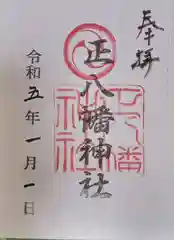 奉拝
正八幡神社
令和五年一月一日